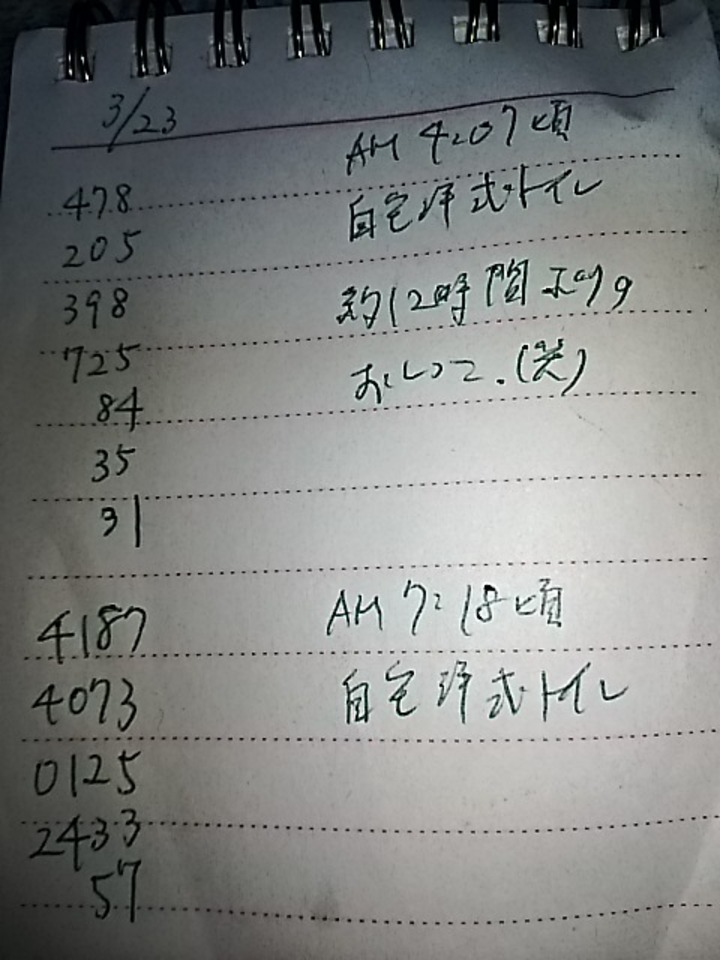 3/23
AM 4:07頃
478
自宅洋式トイレ
205
398
約12時間
725
おしっこ.(笑)
84
35
31
4187
AM 7:18頃
4073
自宅洋式トイレ
0125
2433
57